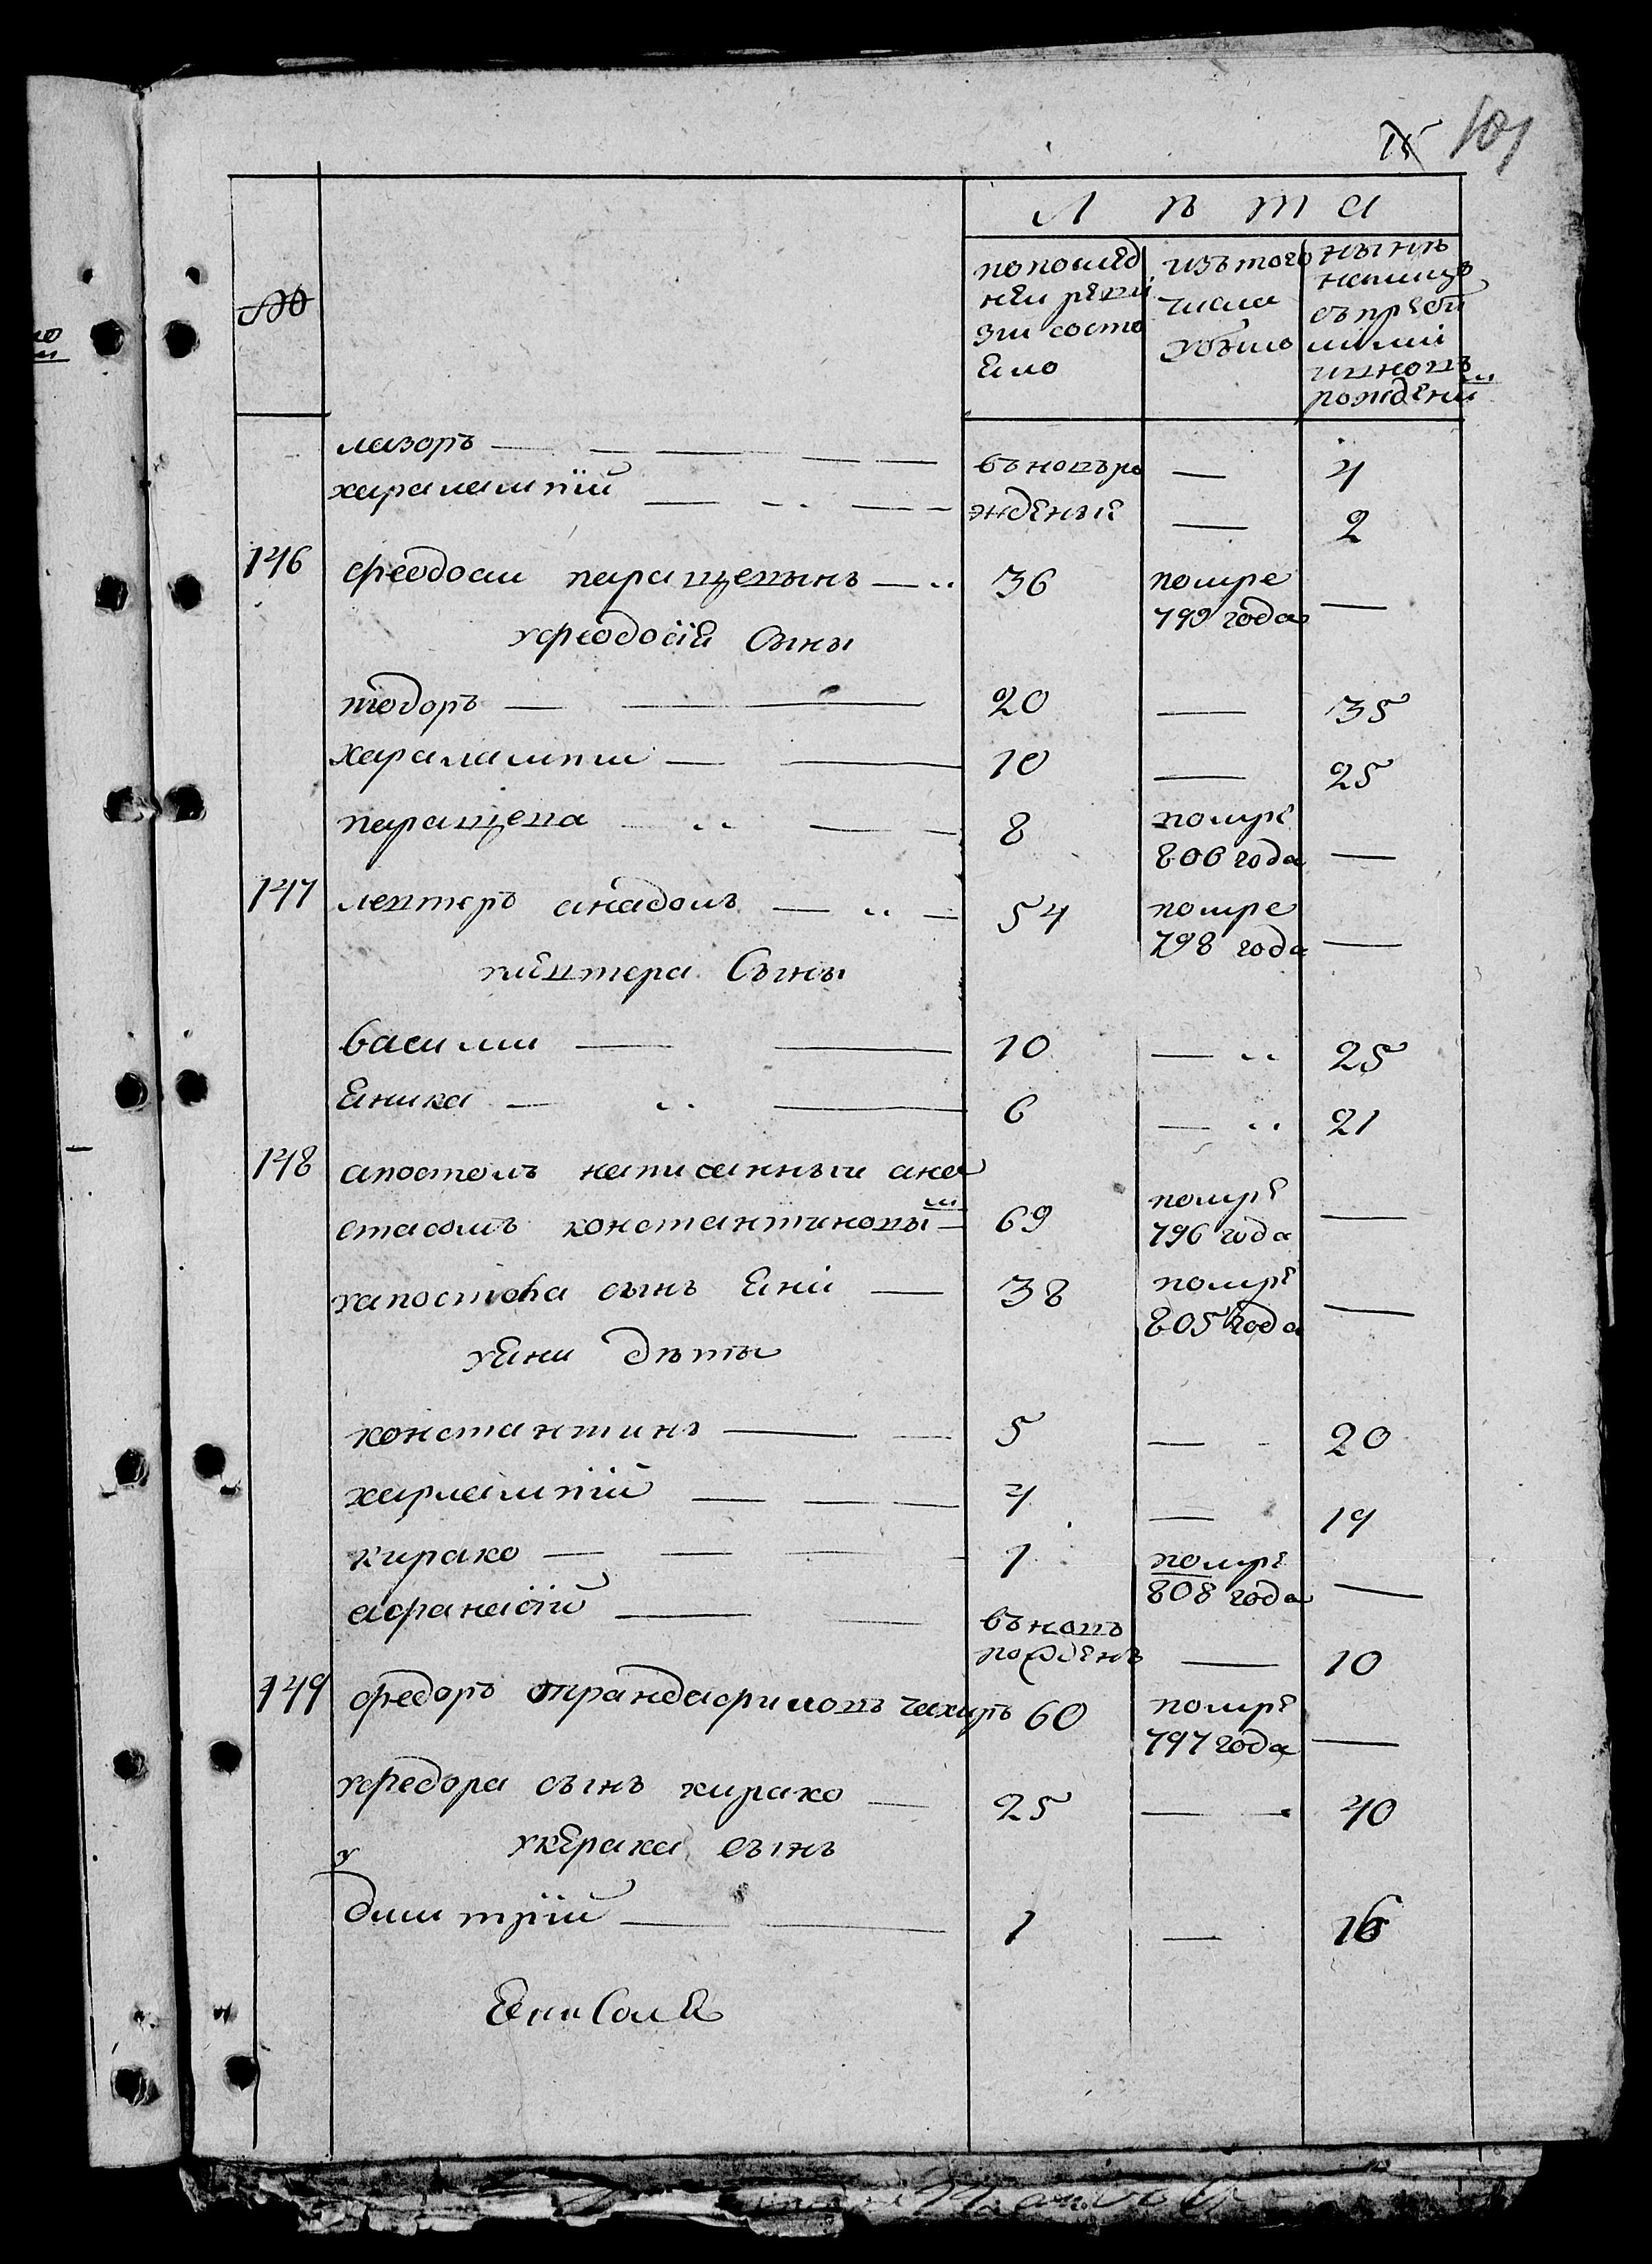 15 101
№
Лѣта
по послед изъ того нынѣ
ней реви числа на лицо
зіи состо убыло съ прибы
яло лыми
и новъ
рожденными
лазоръ — въ новъ ро — 4
харалампій — жденые — 2
146 феодоси паращевынъ — 36 помре
799 года —
у феодосія сыны
тодоръ — 20 — 35
харалампи — 10 — 25
паращева — 8 помре
806 года —
147 левтеръ анадолъ — 54 помре
798 года —
левтера сыны
васили — 10 — 25
яника — 6 — 21
148 апостолъ написанныи ана
стасомъ константиновы — 69 помре
796 года —
у апостола сынъ яни — 38 помре
805 года —
у яни дѣты
константинъ — 5 — 20
харлампій — 4 — 19
кирако — 1 помре
808 года —
афанасій — въ новъ
рожденъ — 10
149 федоръ трандафиловъ чахиръ 60 помре
797 года —
у федора сынъ кирако — 25 — 40
у
у кирака сынъ
димитрій — 1 — 16
Яни Сал